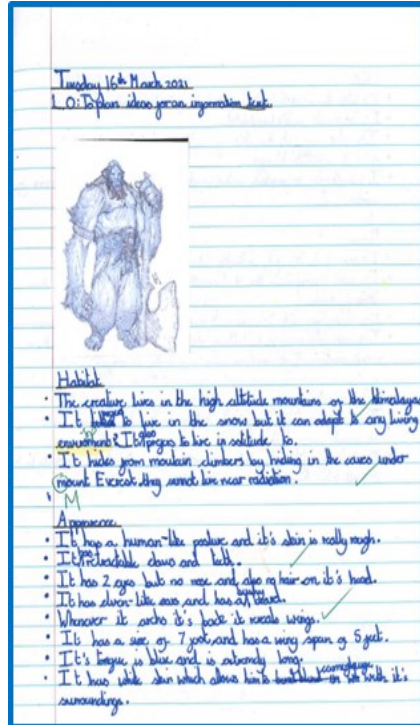 Tuesday 16th March 2021
L.O: To plan ideas for an information text.
Habitat
• The creature lives in the high altitude mountains of the Himalayas
• It to live in the snow but it can adapt to any living
enviroment. It also prefers to live in solitude to.
• It hides from moutain climbers by hiding in the caves under
mount Everest, they cannot live near radiation.
M
Appearence
• It has a human-like posture and it's skin is really rough.
• It has retractable claws and teeth.
• It has 2 eyes but no nose and also no hair on it's head.
• It has elven-like ears and has a bushy beard.
• Whenever it archs it's back it reveals wings.
• It has a size of 7 foot and has a wing span of 5 feet.
• It's tongue is blue and is extremly long.
• It has white skin which allows him to camouflage in with it's
surroundings.